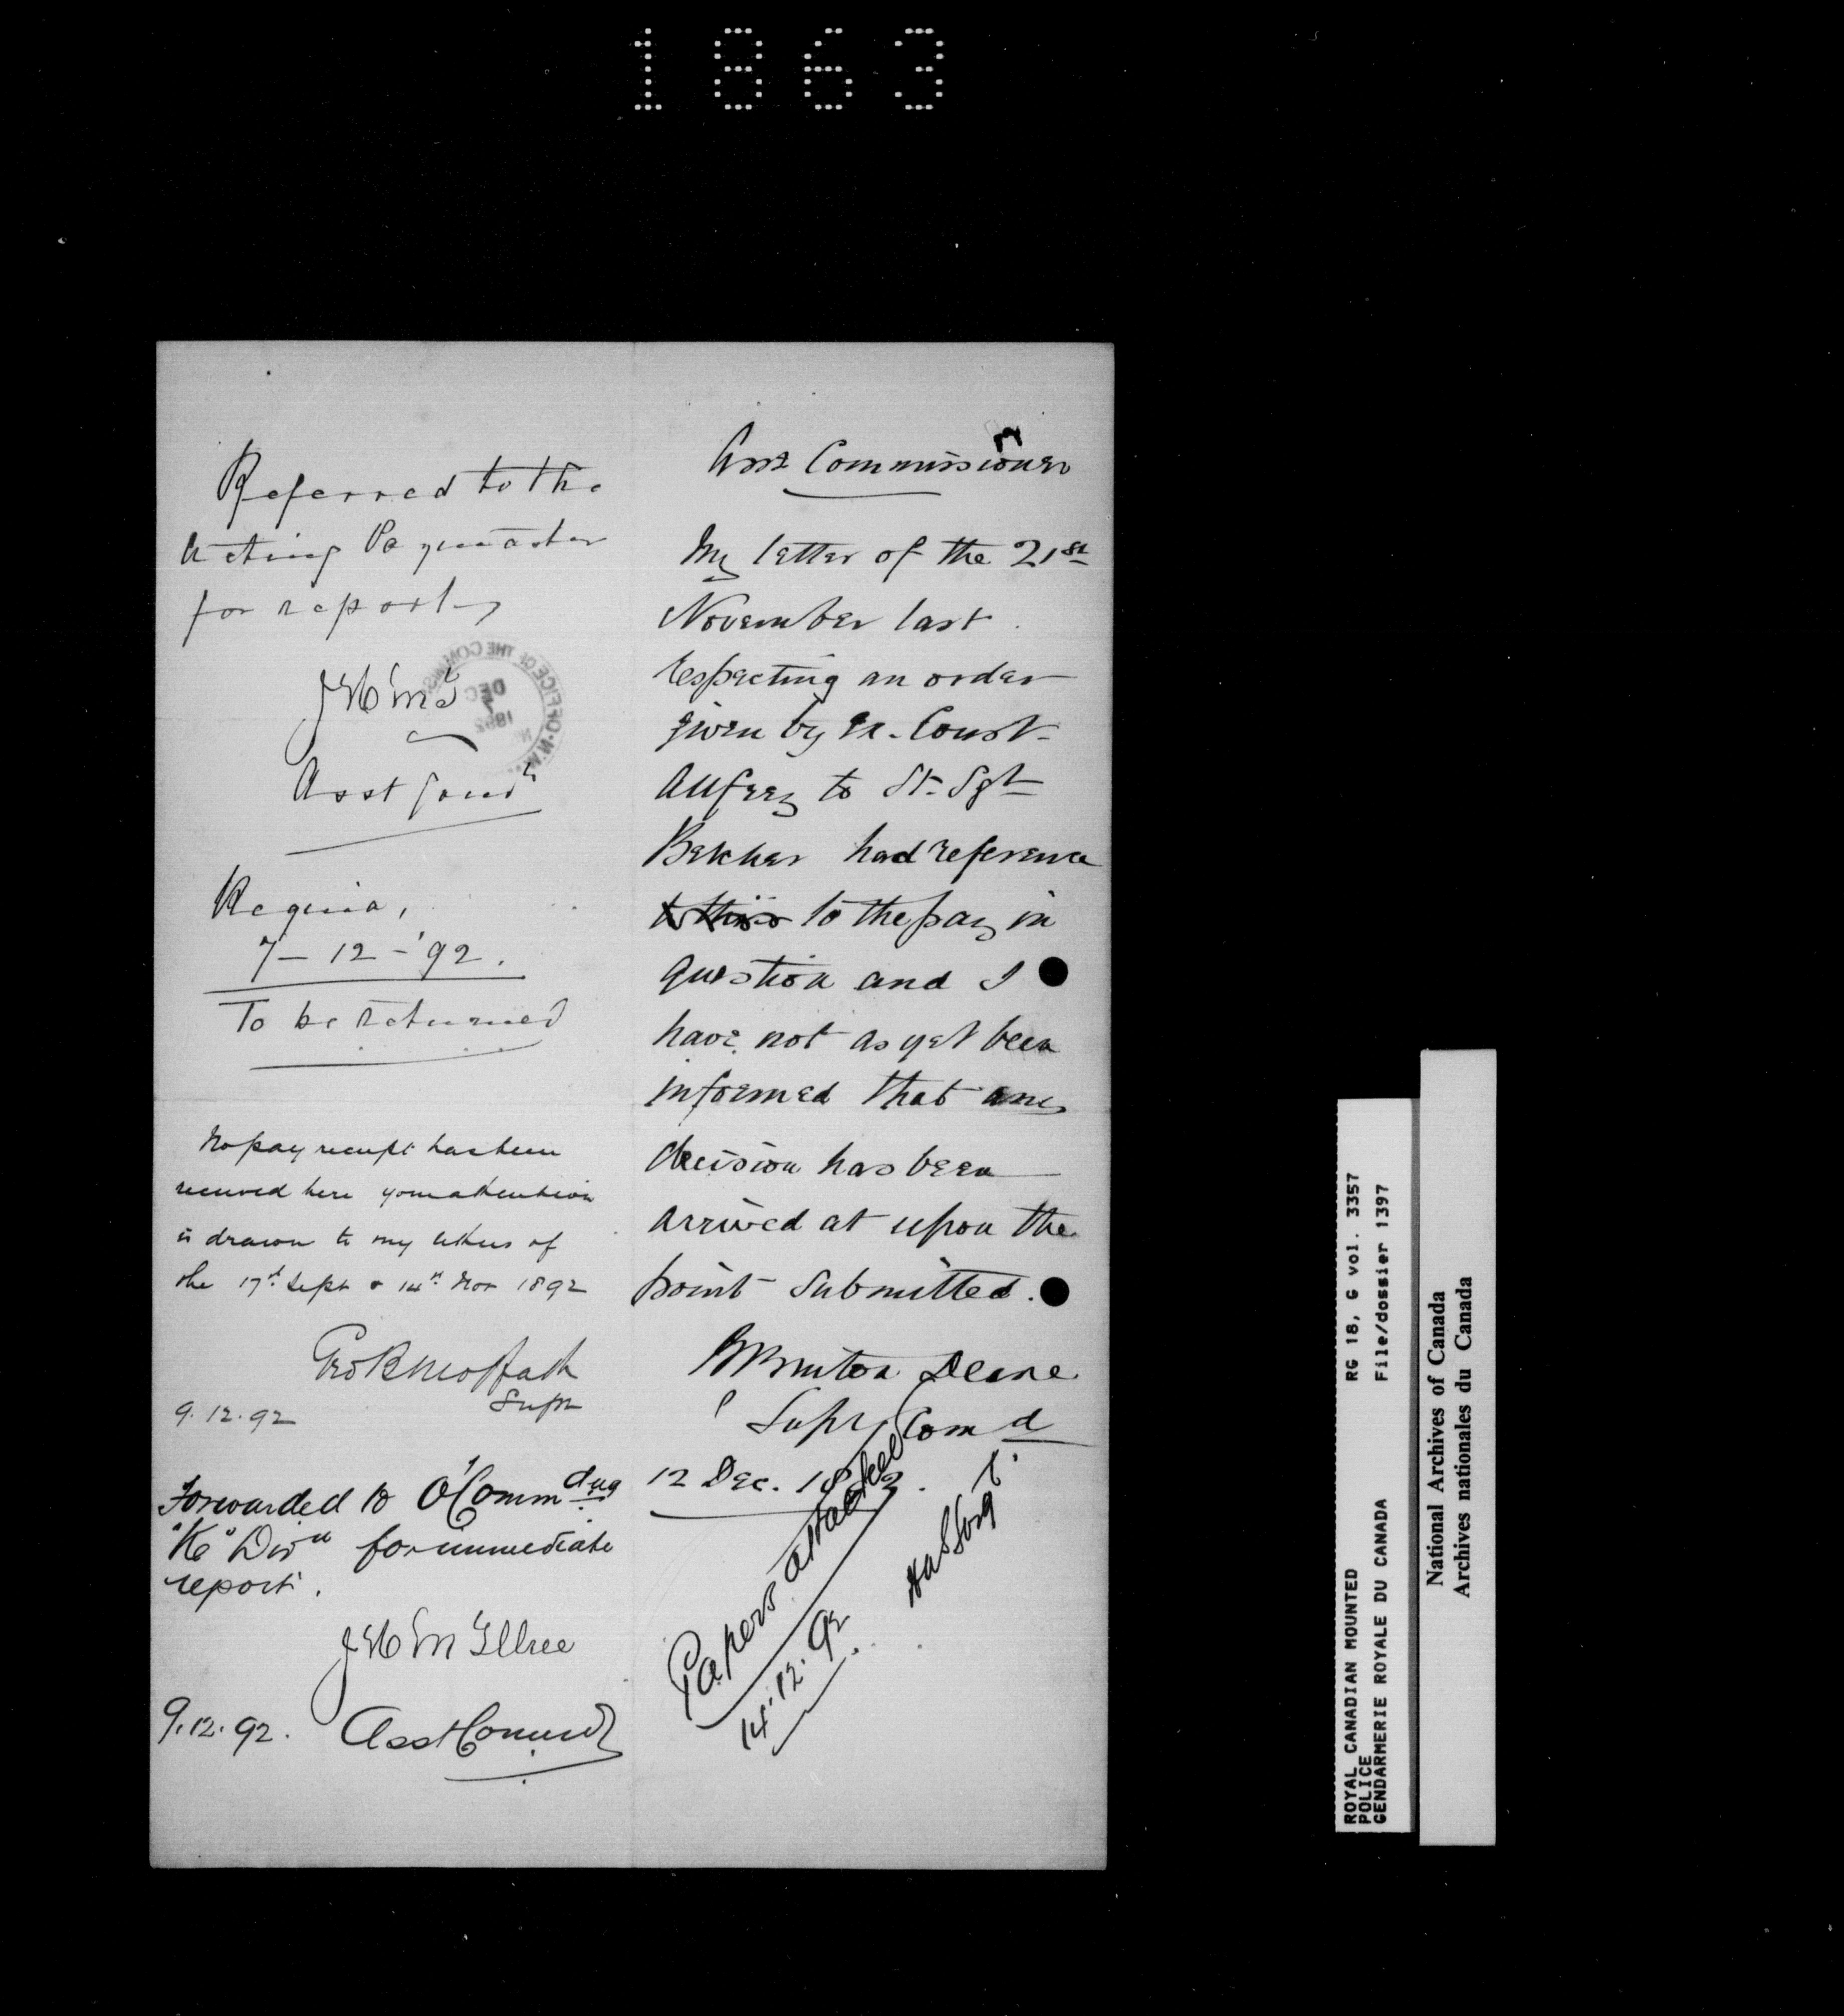 1863
Referred to the
Acting Paymaster
for report
JHMcI
Asst Comr
OFFICE OF THE COMMISS
DEC
7
1892
Regina,
7 – 12 – '92.
To be returned
No pay receipt has been
received here your attention
is drawn to my letters of
the 17th Sept & 14th Nov 1892
Geo B Moffatt
Supt
9.12.92
Forwarded to O'Commdng
"K" Divn for immediate
report.
JHMcIllree
9.12.92. Asst Commr
Asst Commissioner
My letter of the 21st
November last
respecting an order
given by Ex. Const.
Allfrey to St. Sgt
Belcher had reference
to this to the pay in
question and I
have not as yet been
informed that any
decision has been
arrived at upon the
point submitted.
R Burton Deane
Supt Comd
12 Dec. 1892.
Papers attached
14.12.92
ROYAL CANADIAN MOUNTED RG 18, G vol. 3357
POLICE
GENDARMERIE ROYALE DU CANADA File/dossier 1397
National Archives of Canada
Archives nationales du Canada